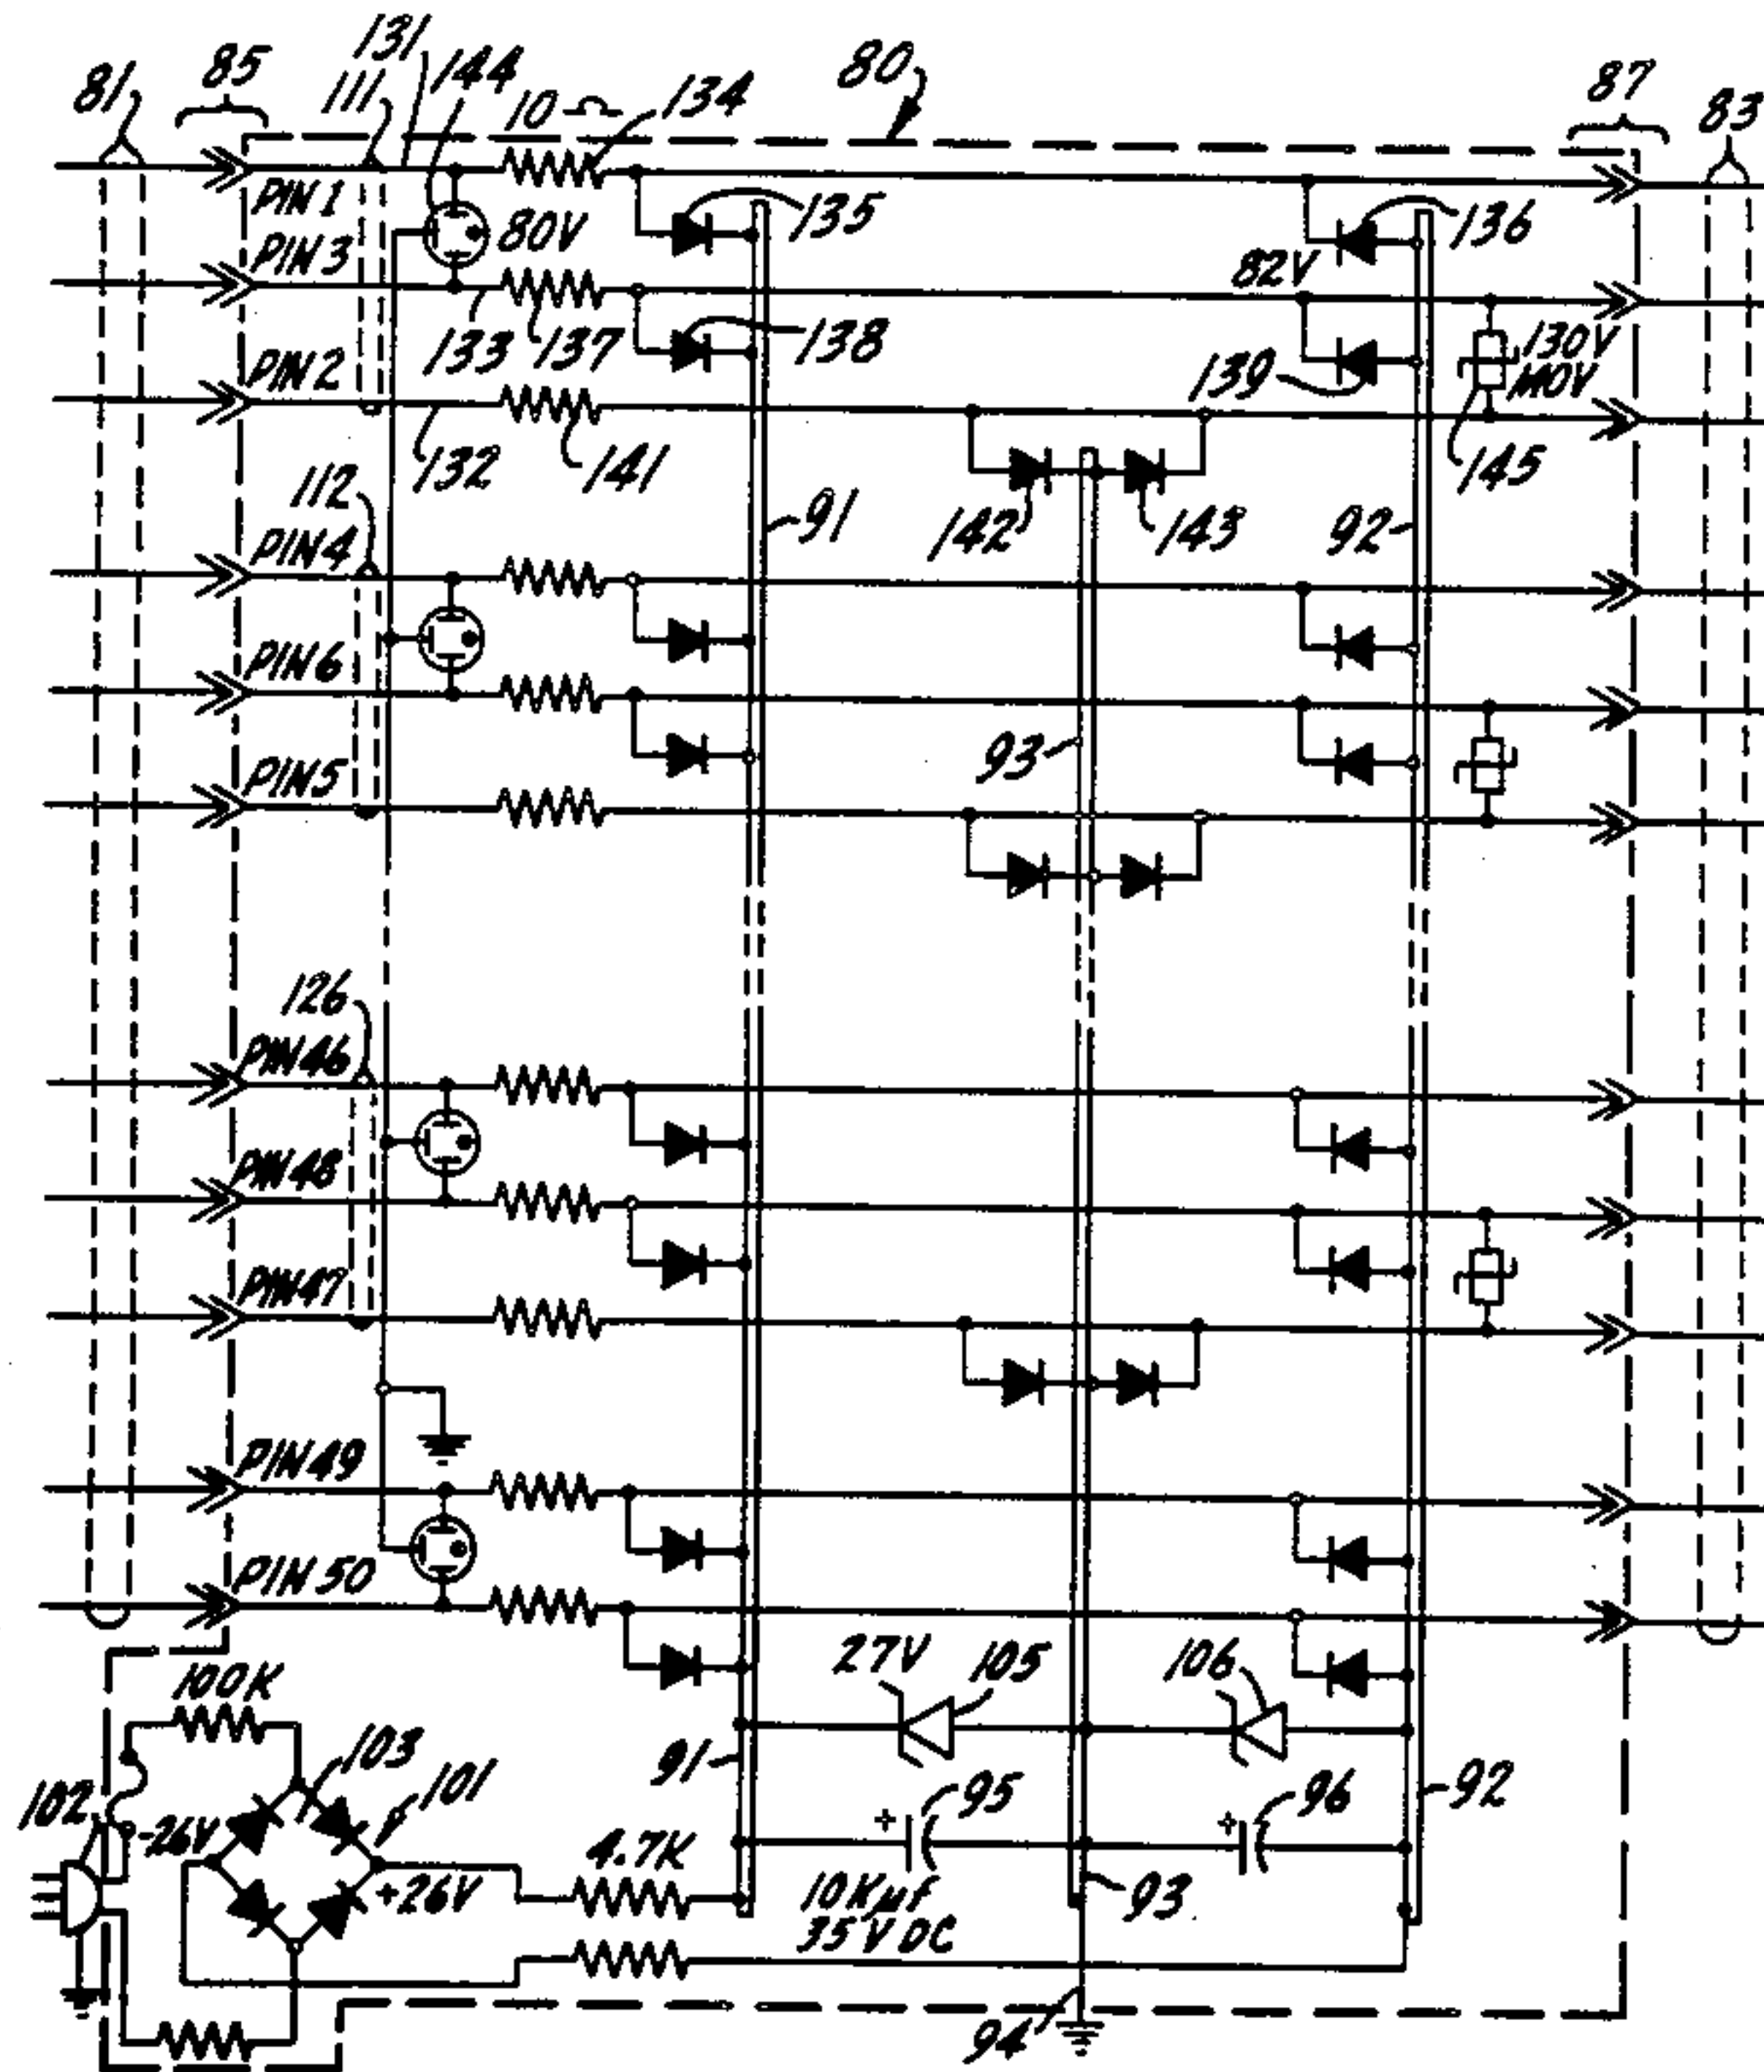 131
85
144
80
87
81
111
10 Ω
134
83
PIN 1
80V
135
136
PIN 3
82V
133
137
138
139
130V
MOV
PIN 2
132
141
145
112
91
142
143
92
PIN 4
PIN 6
93
PIN 5
126
PIN 46
PIN 48
PIN 47
PIN 49
PIN 50
27V
105
106
100K
103
101
91
92
102
-26V
+
95
+
96
4.7K
+26V
10Kµf
35VDC
93
94